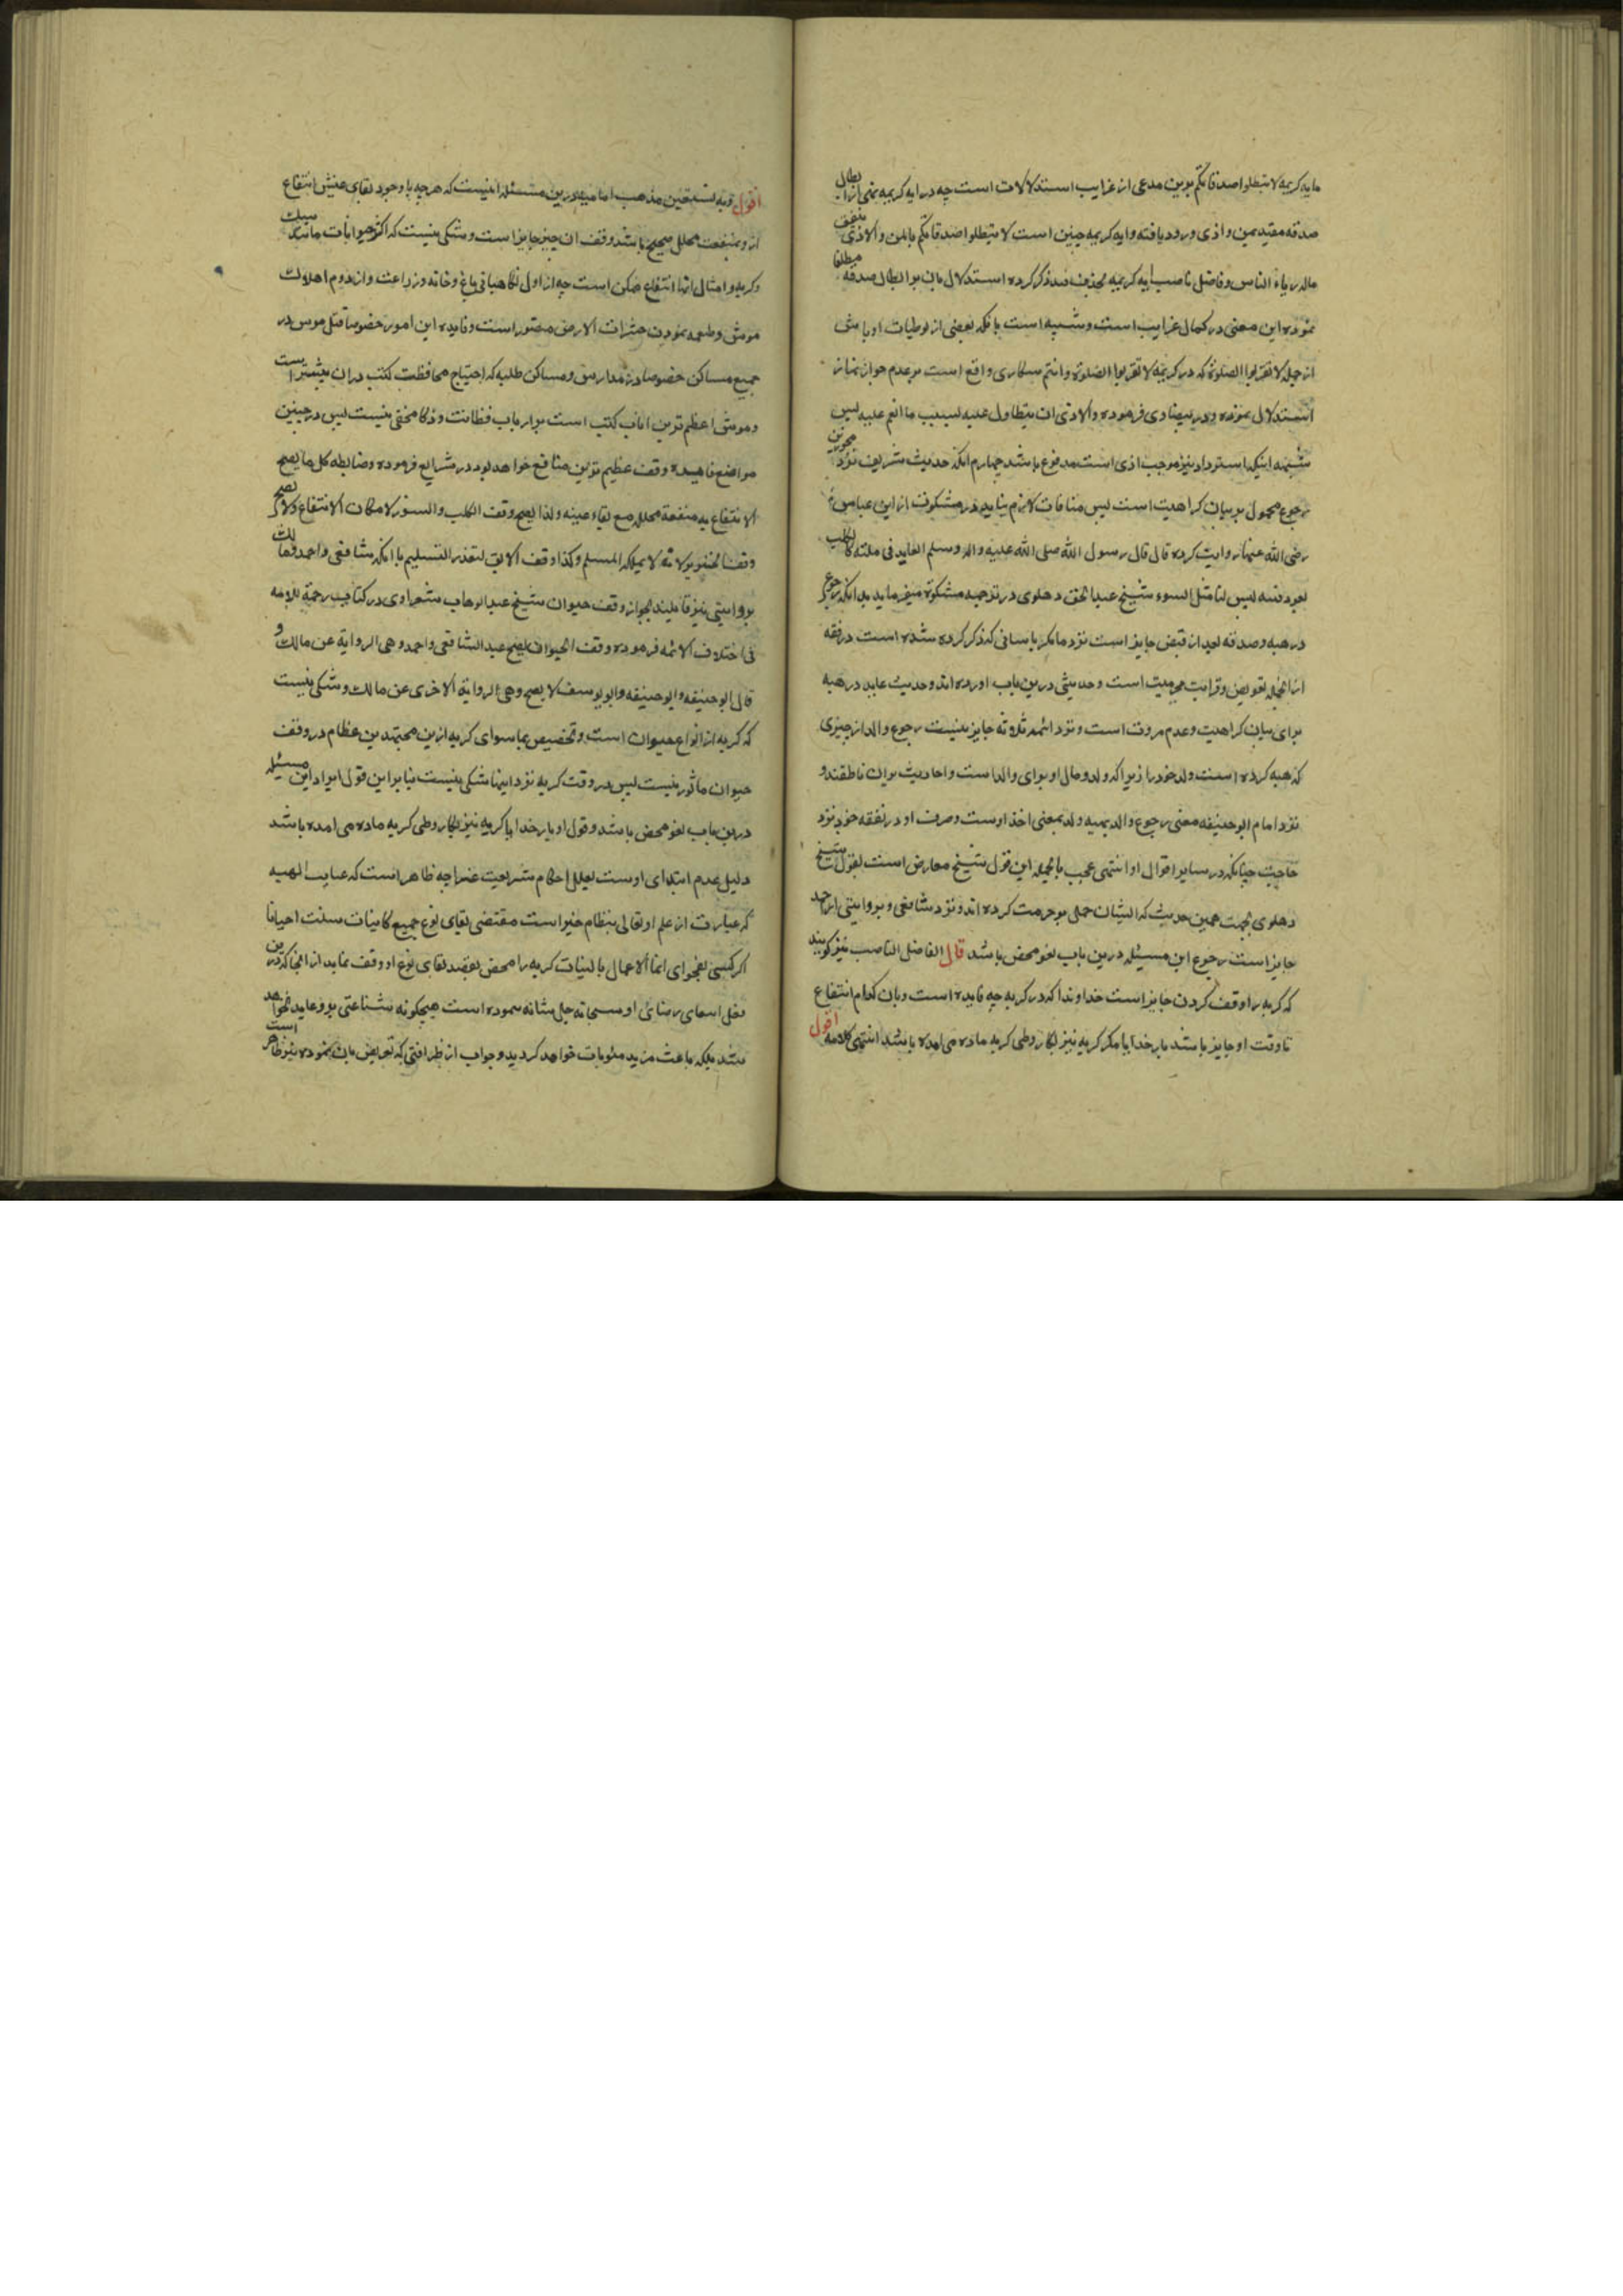 مایه کریمه لا تبطلوا صدقاتکم برین مدعی از غرایب استدلالات است چه در ایه کریمه نهی از ابطال
صدقه مقید بمن و اذی ورود یافته و ایه کریمه چنین است لا تبطلوا صدقاتکم بالمن والاذی کالذی ینفق
ماله ریاء الناس و فاضل ناصب ایه کریمه بحذف قید ذکر کرده استدلال بان بر ابطال صدقه مطلقا
نموده این معنی در کمال غرابت است و شبیه است بانکه بعضی از لوطیات اوباش
از جمله لا تقربوا الصلوة که در کریمه لا تقربوا الصلوة وانتم سکاری واقع است بر عدم جواز نماز
استدلال نموده و در بیضاوی فرموده والاذی ان یتطاول علیه بسبب ما انعم علیه پس
شبهه اینکه استرداد نیز موجب اذی است مدفوع باشد چهارم انکه حدیث شریف نزد مجوزین
رجوع محمول بر بیان کراهیت است پس منافات لازم نیاید در مشکوة از ابن عباس
رضی الله عنهما روایت کرده قال قال رسول الله صلی الله علیه واله وسلم العاید فی هبته کالکلب
یعود قیئه لیس لنا مثل السوء شیخ عبدالحق دهلوی در ترجمه مشکوة میفرماید بدانکه رجوع
در هبه و صدقه بعد از قبض جایز است نزد ما مگر باسبابی که ذکر کرده شده است در فقه
از انجمله تعویض و قرابت محرمیت است و حدیثی درین باب اورده اند و حدیث عاید در هبه
برای بیان کراهیت و عدم مروت است و نزد ائمه ثلاثه جایز نیست رجوع والد از چیزی
که هبه کرده است ولد خود را زیرا که ولد و مال او برای والد است و احادیث بران ناطقند و
نزد امام ابو حنیفه معنی رجوع والد بهبه ولد بمعنی اخذ اوست و صرف او در نفقه خود نزد
حاجت چنانکه در سایر اقوال او انتهی عجب بالجمله این قول شیخ معارض است بقول شیخ
دهلوی بجهت همین حدیث که ایشان حمل بر حرمت کرده اند و نزد شافعی و بروایتی از احمد
جایز است رجوع این مسئله درین باب لغو محض باشد قال الفاضل الناصب نیز گویند
که گربه را وقف کردن جایز است خداوندا که در گربه چه فایده است و بان کدام انتفاع
تا وقف او جایز باشد بار خدایا مگر گربه نیز بکار وطی گربه ماده می امده باشد انتهی کلامه اقول
اقول وبه نستعین مذهب امامیه درین مسئله اینست که هر چه با وجود بقای عینش انتفاع
از و بمنفعت محلل صحیح باشد وقف ان چیز جایز است و شکی نیست که اکثر حیوانات مانند سک
و گربه و امثال انها انتفاع ممکن است چه از اول نگاهبانی باغ و خانه و زراعت و از دوم اهلاک
موش و طعمه نمودن حشرات الارض متصور است و فایده این امور خصوصا قتل موس در
جمیع مساکن خصوصا در مدارس و مساکن طلبه که احتیاج محافظت کتب دران بیشتر است
و موش اعظم ترین افات کتب است بر ارباب فطانت و ذکا مخفی نیست پس در چنین
مواضع فایده وقف عظیم ترین منافع خواهد بود در شرایع فرموده وضابطه کل ما یصح
الانتفاع به منفعة محللة مع بقاء عینه ولذا یصح وقف الکلب والسنور لامکان الانتفاع ولا یصح
وقف الخنزیر لانه لا یملکه المسلم وکذا وقف الابق لتعذر التسلیم با انکه شافعی و احمد و مالک
بروایتی نیز قایلند بجواز وقف حیوان شیخ عبدالوهاب شعراوی در کتاب رحمة الامه
فی اختلاف الائمه فرموده وقف الحیوان یصح عند الشافعی واحمد وهی الروایة عن مالک و
قال ابو حنیفه وابو یوسف لا یصح وهی الروایة الاخری عن مالک و شکی نیست
که گربه از انواع حیوان است و تخصیص بماسوای گربه ازین مجتهدین عظام در وقف
حیوان ماثور نیست پس در وقف گربه نزد اینها شکی نیست بنابراین قول ایراد این مسئله
درین باب لغو محض باشد و قول او بار خدایا گربه نیز بکار وطی گربه ماده می امده باشد
دلیل عدم اهتدای اوست بعلل احکام شریعت غرا چه ظاهر است که عنایت الهیه
که عبارت از علم او تعالی بنظام خیر است مقتضی بقای نوع جمیع کاینات است احیانا
اگر کسی بفحوای انما الاعمال بالنیات گربه را محض بقصد بقای نوع او وقف نماید از انجا که درین
فعل رضای او سبحانه جل شانه نموده است هیچگونه شناعتی برو عاید نخواهد
شد بلکه باعث مزید مثوبات خواهد گردید و جواب از ظرافتی که تعریض بان نموده نیز ظاهر است